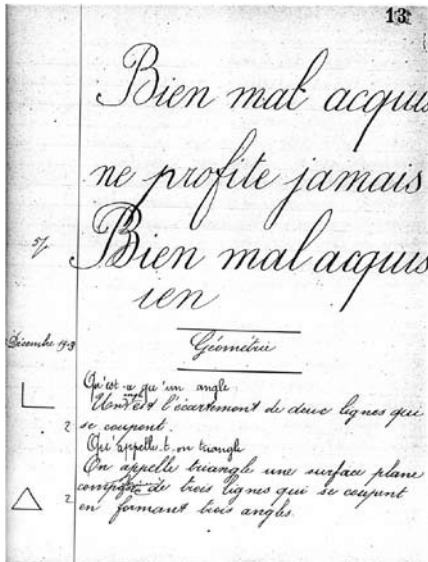 13
Bien mal acquis
ne profite jamais
Bien mal acquis
ien
Décembre
Géométrie
Qu'est-ce qu'un angle
Un angle est l'écartement de deux lignes qui
se coupent.
2
Qu'appelle-t-on triangle
On appelle triangle une surface plane
composée de trois lignes qui se coupent
2
en formant trois angles.